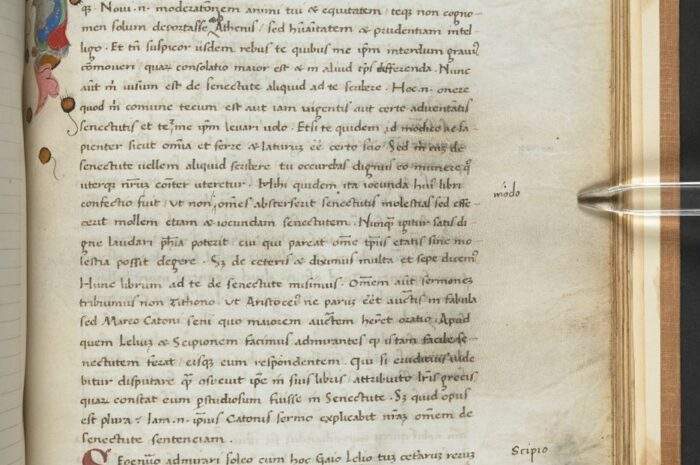 qȝ. Noui .n. moderationem animi tui & equitatem / teqȝ non cogno
men solum deportasse Athenis / sed hūanitatem & prudentiam intel
ligo. Et tn̄ suspicor iisdem rebus te quibus me ip̄m interdum graui᷒
cōmoueri / quaꝝ consolatio maior est & in aliud tp̄s differenda. Nunc
aūt m̄ uisum est de senectute aliquid ad te scribere. Hoc .n. onere
quod m̄ comune tecum est aut iam urgentis aut certe aduentātis
senectutis et te & me ip̄m leuari uolo. Etsi te quidem id modice ac sa
pienter sicut om̄ia et ferre & laturum eē certo scio. Sed m̄ cum de
senectute uellem aliquid scribere tu occurebas dignus eo munere q°
uterqȝ nr̄um cōiter uteretur. Mihi quidem ita iocunda huius libri
confectio fuit / ut non om̄es absterserit senectutis molestias sed effe
cerit mollem etiam & iocundam senectutem. Nunqȝ igitur satis di
gne laudari ph̄ia poterit / cui qui pareat om̄e tp̄us etatis sine mo
lestia possit degere. Sȝ de ceteris & diximus multa et sepe dicem᷒
Hunc librum ad te de senectute misimus. Omēm aūt sermonem
tribuimus non Tithono. Ut Aristoceus ne parum eēt auctis in fabula
sed Marco Catoni seni quo maiorem auctem heret oratio. Apud
quem Leliuȝ & Scipionem facimus admirantes qȝ istam facile se
nectutem ferat / eisqȝ eum respondentem. Qui si eruditius uide
bitur disputare qȝ consueuit ipe in suis libris / attributo lr̄is grecis
quaꝝ constat eum pstudiosum fuisse in Senectute. Sȝ quid opus
est plura? Iam .n. ipsius Catonis sermo explicabit nr̄am omēm de
senectute sentenciam.
Sepenuo admirari soleo cum hoc Gaio Lelio tuȝ cetaruȝ reruȝ
modo
Scipio